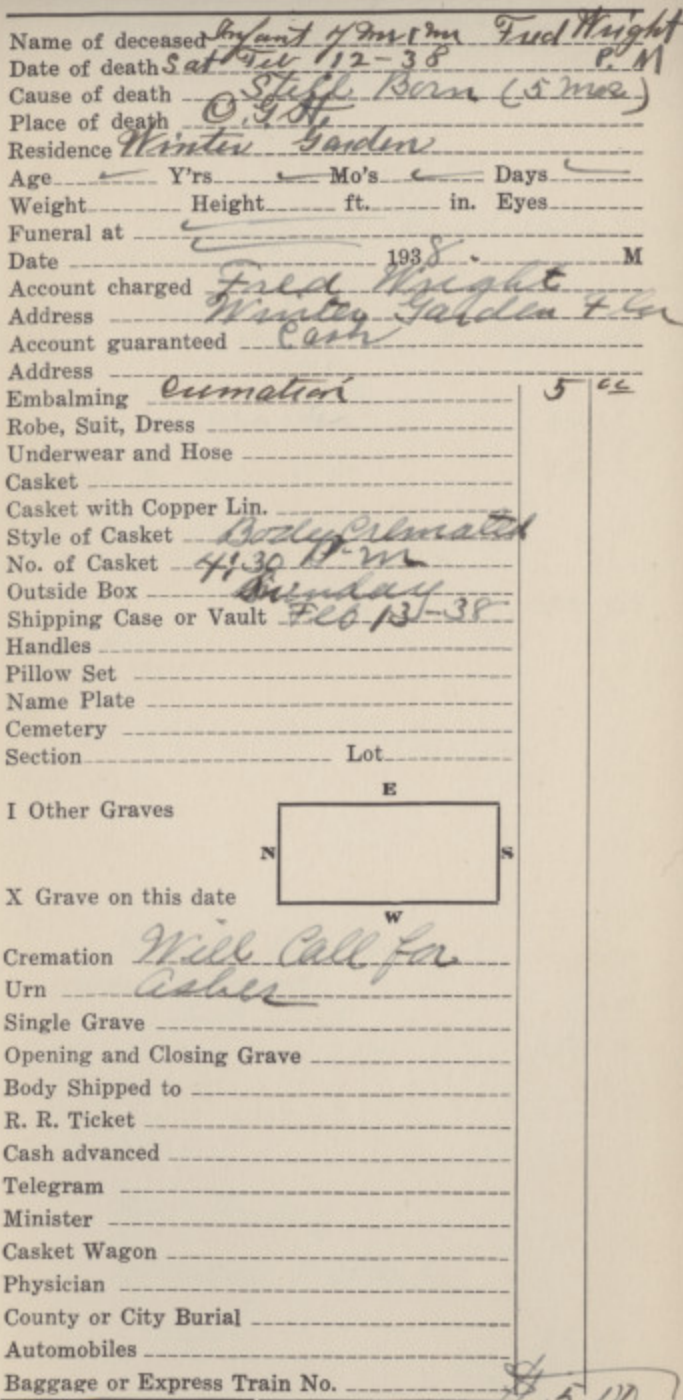 Name of deceased Infant of Mr & Mr Fred Wright
Date of death Sat Feb 12-38 P.M
Cause of death Still Born (5 mos)
Place of death O.G.H.
Residence Winter Garden
Age Y'rs Mo's Days
Weight Height ft. in. Eyes
Funeral at
Date 1938. M
Account charged Fred Wright
Address Winter Garden Fla
Account guaranteed Cash
Address
Embalming Cremation 5 00
Robe, Suit, Dress
Underwear and Hose
Casket
Casket with Copper Lin.
Style of Casket Body Cremated
No. of Casket 4:30 P-m
Outside Box Sunday
Shipping Case or Vault Feb 13-38
Handles
Pillow Set
Name Plate
Cemetery
Section Lot
E
I Other Graves
N S
X Grave on this date
W
Cremation Will Call for
Urn ashes
Single Grave
Opening and Closing Grave
Body Shipped to
R. R. Ticket
Cash advanced
Telegram
Minister
Casket Wagon
Physician
County or City Burial
Automobiles
Baggage or Express Train No. $ 5 00